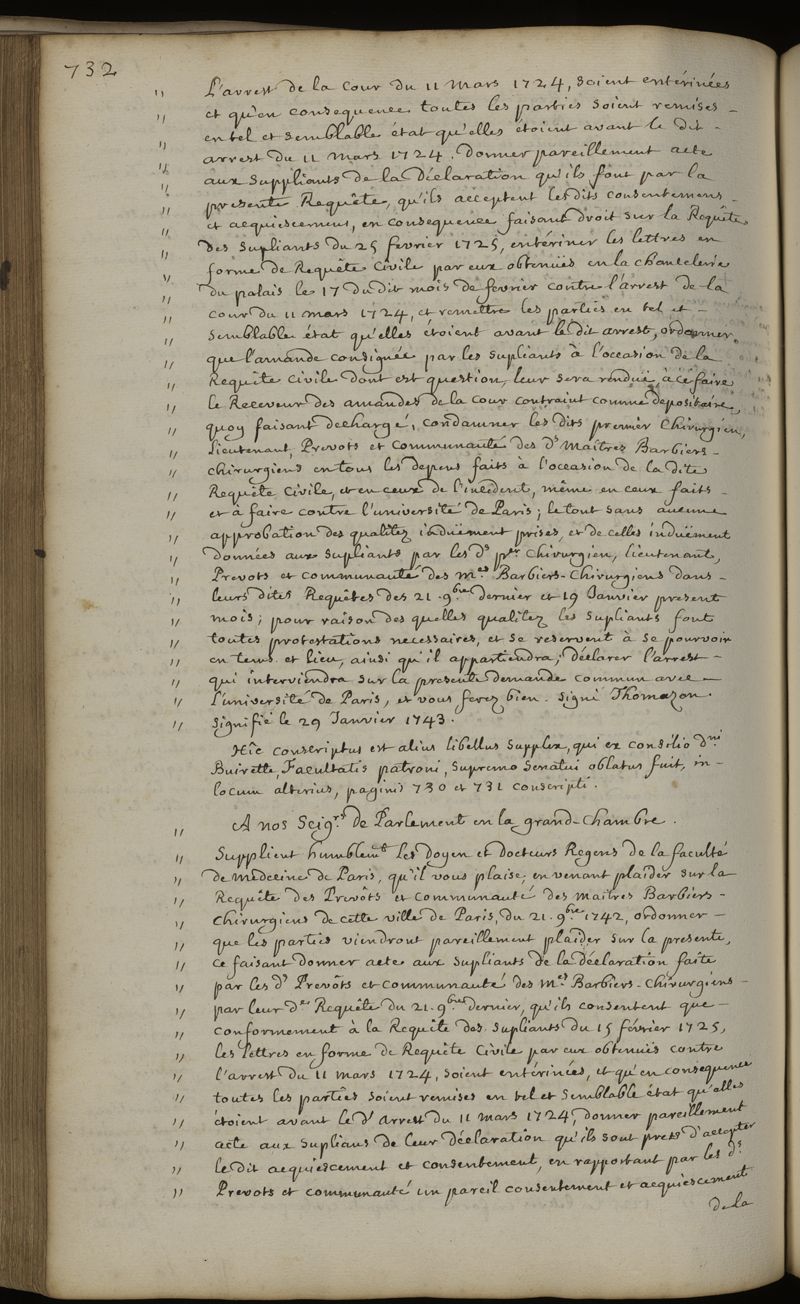 732
" L'arrest de la Cour du 11 Mars 1724, soient entérinées
" et qu'en consequence toutes les parties soient remises -
" en tel et semblable état qu'elles étoient avant le dit -
" arrest du 11 Mars 1724. donner pareillement acte
" aux Suppliants de la Déclaration qu'ils font par la
" presente Requête, qu'ils acceptent lesdits consentemens -
" et acquiescemens, en consequence faisant droit sur la Requête
" des Supliants du 25 fevrier 1725, entériner les lettres en
" forme de Requête Civile par eux obtenuës en la Chancelerie
" du palais le 17 du dit mois de fevrier contre l'arrest de la
" Cour du 11 mars 1724, et remettre les parties en tel et -
" semblable état qu'elles étoient avant le dit arrest, ordonner,
" que l'amande consignée par les Supliants à l'occasion de la
" Requête Civile dont est question, leur sera renduë, à ce faire
" le Receveur des amandes de la Cour contraint comme depositaire,
" quoy faisant dechargé, condamner les dits premier Chirurgien,
" Lieutenant, Prevots et Communauté des ds Maîtres Barbiers -
" chirurgiens en tous les depens faits à l'occasion de la dite
" Requête Civile, et en ceux de l'incident, même en ceux faits -
" et à faire contre l'université de Paris; le tout sans aucune
" approbation des qualitez induëment prises, et de celles induëment
" données aux Supliants par les ds per Chirurgien, lieutenant,
" Prevots et communauté des mes Barbiers-Chirurgiens dans -
" leurs dites Requêtes des 21. 9bre dernier et 19 Janvier present
" mois; pour raison des quelles qualitez les Supliants font
" toutes protestations necessaires, et se reservent à se pourvoir
" en tems et lieu, ainsi qu'il appartiendra; déclarer l'arrest -
" qui interviendra sur la presente demande commun avec -
" l'université de Paris, et vous ferez bien. Signé Thomazon.
" Signifié le 29 Janvier 1743.
Hîc conscriptus est alius libellus supplex, qui ex consilio dni
Buirette, Facultatis patroni, supremo Senatui oblatus fuit, in -
locum alterius, paginis 730 et 731 conscripti.
" A nos Seigrs de Parlement en la grand-Chambre.
" Supplient humblemt les Doyen et Docteurs Regens de la faculté
" de Médecine de Paris, qu'il vous plaise, en venant plaider sur la
" Requête des Prevôts et Communauté des maitres Barbiers -
" Chirurgiens de cette ville de Paris, du 21. 9bre 1742, ordonner -
" que les parties viendront pareillement plaider sur la presente,
" ce faisant donner acte aux Supliants de la déclaration faite
" par les ds Prevôts et Communauté des Mes Barbiers-Chirurgiens -
" par leur de Requête du 21. 9bre dernier, qu'ils consentent que -
" conformement à la Requête des Supliants du 15 février 1725,
" les lettres en forme de Requête Civile par eux obtenuës contre
" l'arrest du 11 mars 1724, soient entérinées, et qu'en consequence
" toutes les parties soient remises en tel et semblable état qu'elles
" étoient avant le dt arrest du 11 Mars 1724, donner pareillement
" acte aux Suplians de leur déclaration qu'ils sont prets d'accepter
" le dit acquiescement et consentement, en rapportant par les ds
" Prevots et communauté un pareil consentement et acquiescement
de la